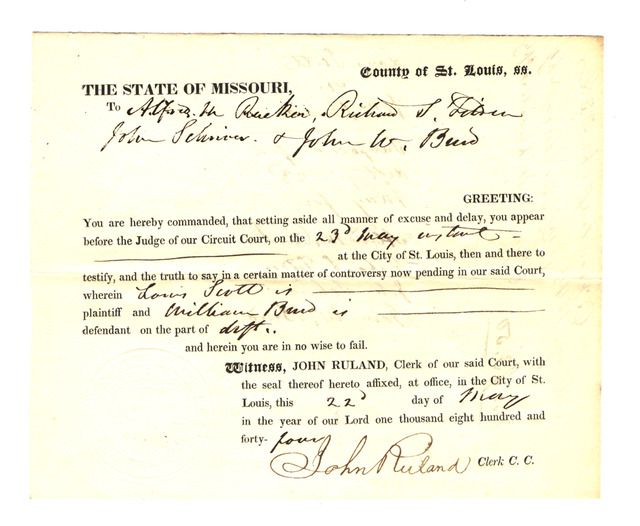 County of St. Louis, ss.
THE STATE OF MISSOURI,
To Alfred M Rucker, Richard S.
John Schriver. & John W. Burd
GREETING:
You are hereby commanded, that setting aside all manner of excuse and delay, you appear
before the Judge of our Circuit Court, on the 23d May instant
at the City of St. Louis, then and there to
testify, and the truth to say in a certain matter of controversy now pending in our said Court,
wherein Louis Scott is
plaintiff and William Burd is
defendant on the part of deft.
and herein you are in no wise to fail.
Witness, JOHN RULAND, Clerk of our said Court, with
the seal thereof hereto affixed, at office, in the City of St.
Louis, this 22d day of May
in the year of our Lord one thousand eight hundred and
forty-four
John Ruland Clerk C. C.